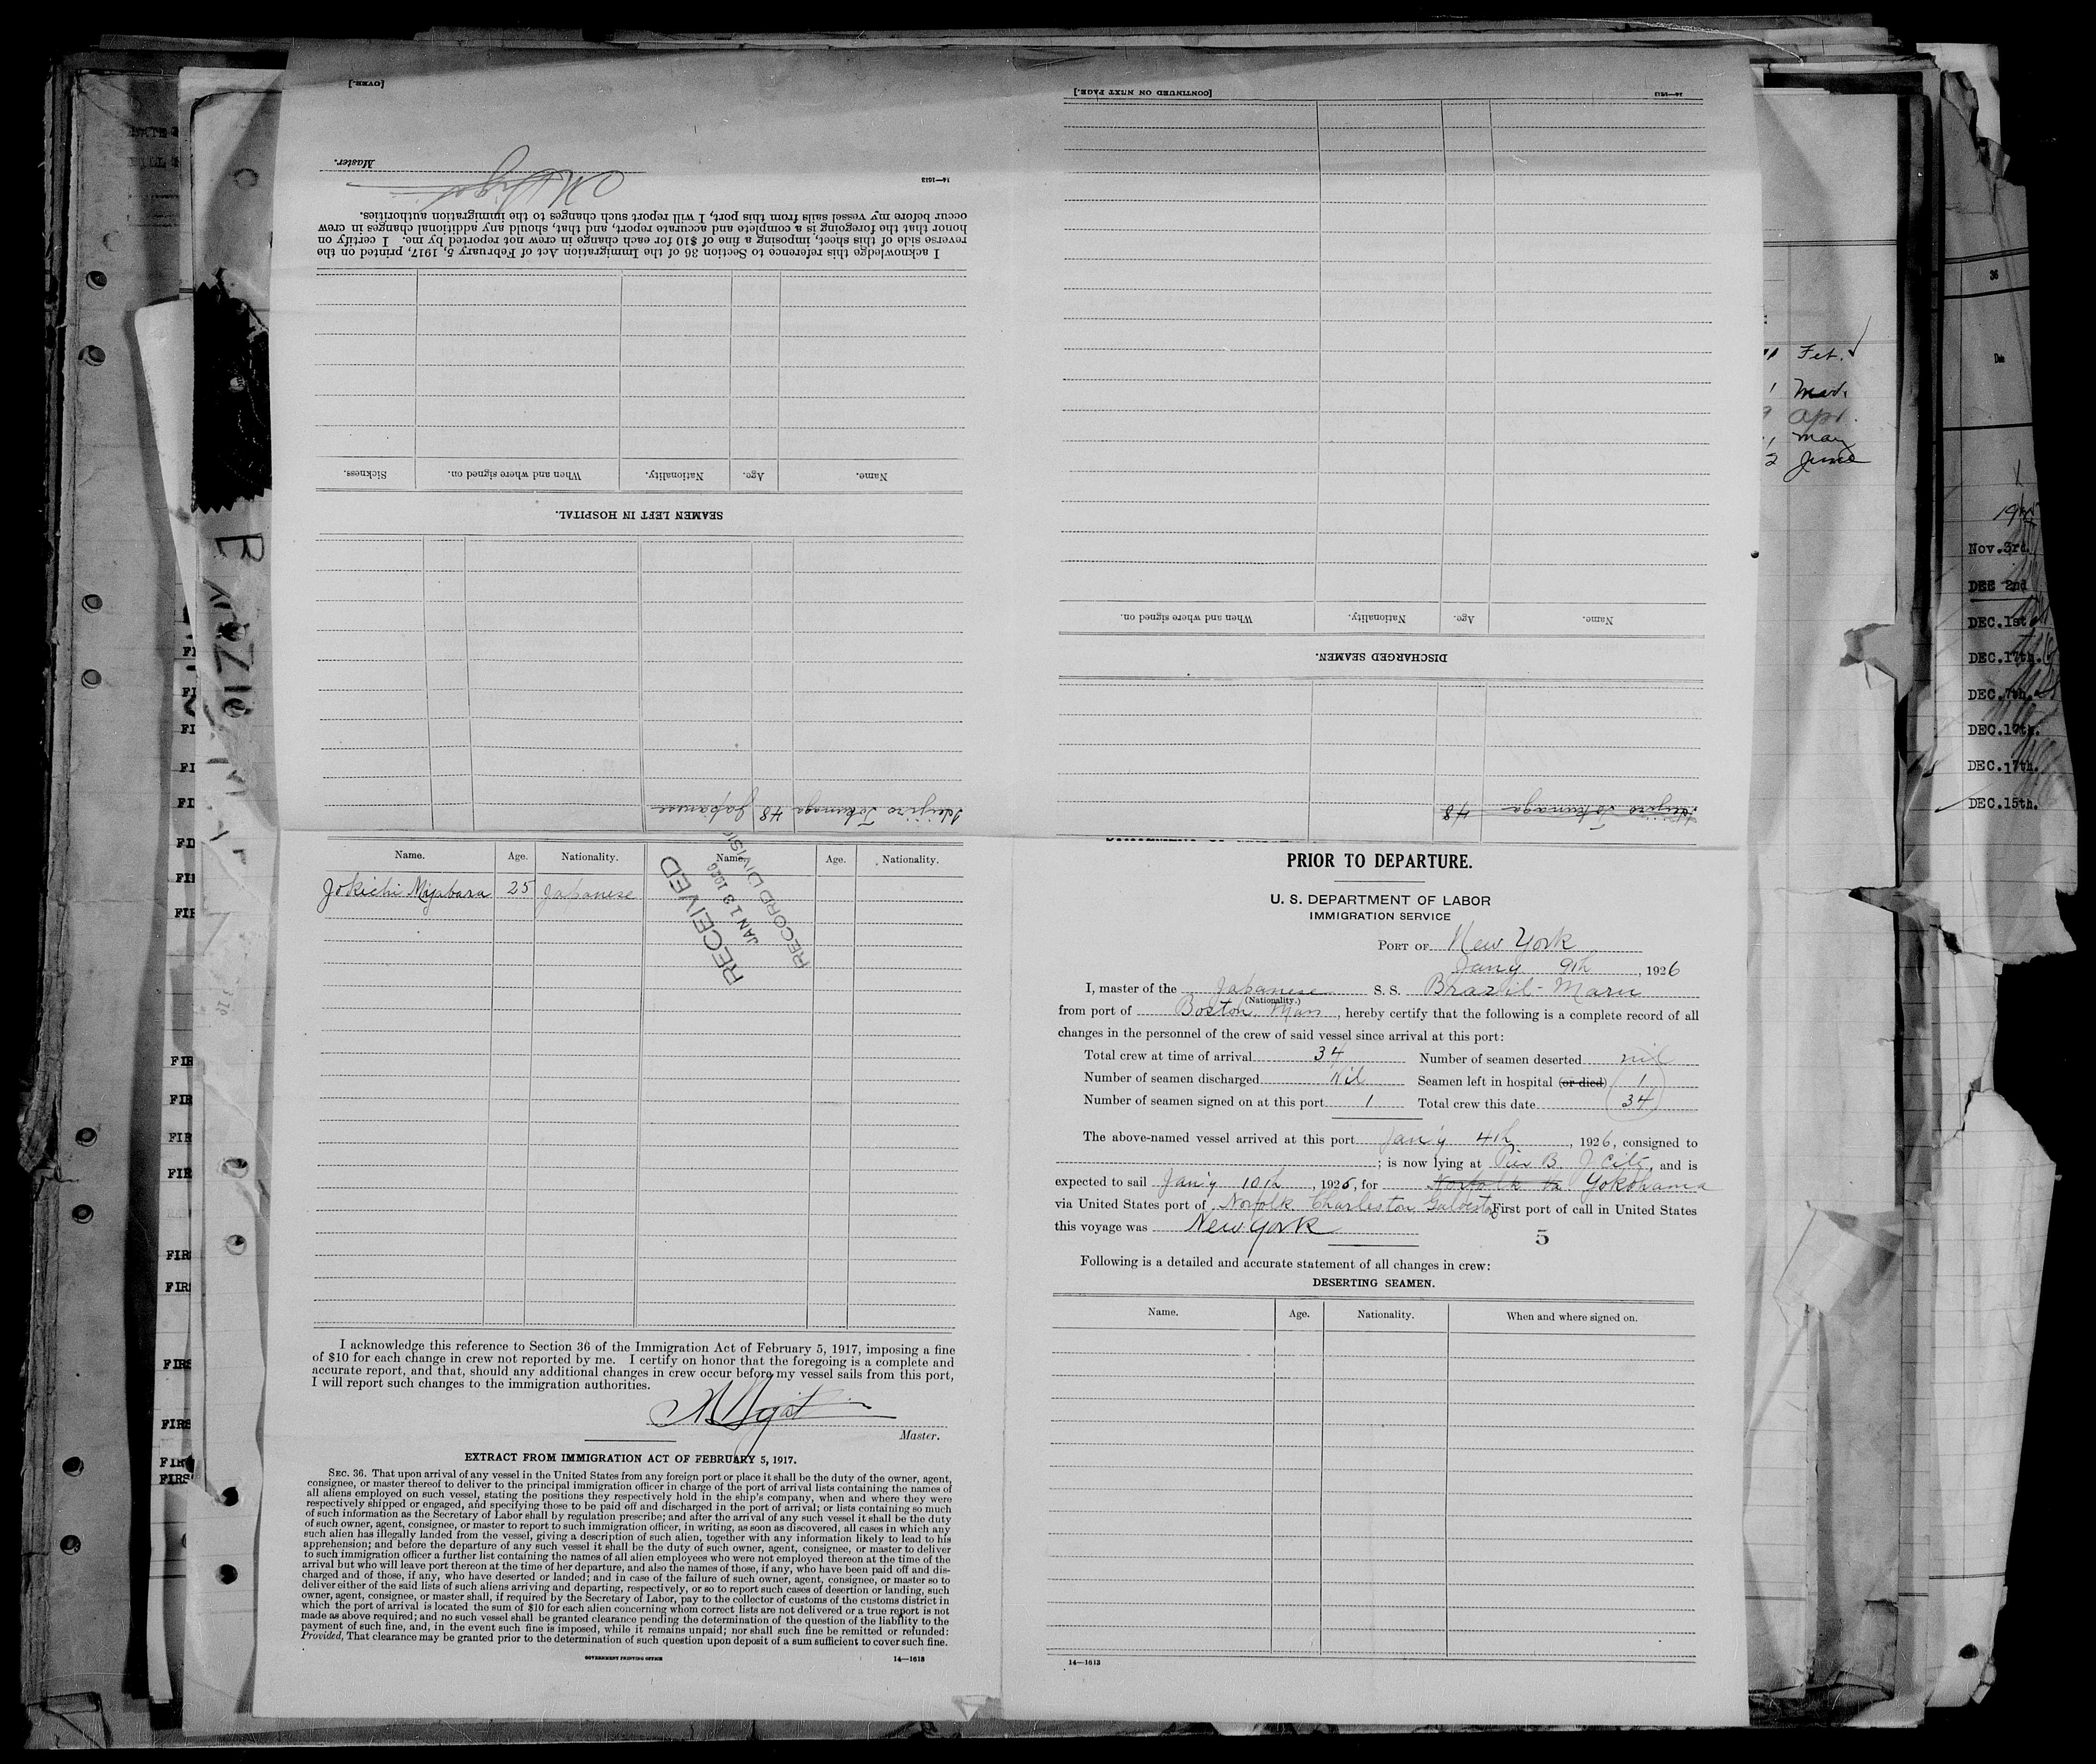 PRIOR TO DEPARTURE.
U. S. DEPARTMENT OF LABOR
IMMIGRATION SERVICE
PORT OF New York
Jany 9th, 1926
I, master of the Japanese S. S. Brazil-Maru
(Nationality.)
from port of Boston Mass, hereby certify that the following is a complete record of all
changes in the personnel of the crew of said vessel since arrival at this port:
Total crew at time of arrival 34 Number of seamen deserted nil
Number of seamen discharged Nil Seamen left in hospital (or died) 1
Number of seamen signed on at this port 1 Total crew this date 34
The above-named vessel arrived at this port Jan'y 4th, 1926, consigned to
; is now lying at Pier B. J City, and is
expected to sail Jan'y 10th, 1926, for Norfolk Va Yokohama
via United States port of Norfolk Charleston Galveston First port of call in United States
this voyage was New York
5
Following is a detailed and accurate statement of all changes in crew:
DESERTING SEAMEN.
Name. Age. Nationality. When and where signed on.
14—1613
Tokunaga 48
DISCHARGED SEAMEN.
Name. Age. Nationality. When and where signed on.
[CONTINUED ON NEXT PAGE.]
14—1613
Tokunaga 48 Japanese
SEAMEN LEFT IN HOSPITAL.
Name. Age. Nationality. When and where signed on. Sickness.
I acknowledge this reference to Section 36 of the Immigration Act of February 5, 1917, printed on the
reverse side of this sheet, imposing a fine of $10 for each change in crew not reported by me. I certify on
honor that the foregoing is a complete and accurate report, and that, should any additional changes in crew
occur before my vessel sails from this port, I will report such changes to the immigration authorities.
14—1613
Master.
[OVER.]
Name. Age. Nationality. Name. Age. Nationality.
Jokichi Miyabara 25 Japanese
RECEIVED
JAN 13 1926
RECORD DIVISION
I acknowledge this reference to Section 36 of the Immigration Act of February 5, 1917, imposing a fine
of $10 for each change in crew not reported by me. I certify on honor that the foregoing is a complete and
accurate report, and that, should any additional changes in crew occur before my vessel sails from this port,
I will report such changes to the immigration authorities.
Master.
EXTRACT FROM IMMIGRATION ACT OF FEBRUARY 5, 1917.
SEC. 36. That upon arrival of any vessel in the United States from any foreign port or place it shall be the duty of the owner, agent,
consignee, or master thereof to deliver to the principal immigration officer in charge of the port of arrival lists containing the names of
all aliens employed on such vessel, stating the positions they respectively hold in the ship's company, when and where they were
respectively shipped or engaged, and specifying those to be paid off and discharged in the port of arrival; or lists containing so much
of such information as the Secretary of Labor shall by regulation prescribe; and after the arrival of any such vessel it shall be the duty
of such owner, agent, consignee, or master to report to such immigration officer, in writing, as soon as discovered, all cases in which any
such alien has illegally landed from the vessel, giving a description of such alien, together with any information likely to lead to his
apprehension; and before the departure of any such vessel it shall be the duty of such owner, agent, consignee, or master to deliver
to such immigration officer a further list containing the names of all alien employees who were not employed thereon at the time of the
arrival but who will leave port thereon at the time of her departure, and also the names of those, if any, who have been paid off and dis-
charged and of those, if any, who have deserted or landed; and in case of the failure of such owner, agent, consignee, or master so to
deliver either of the said lists of such aliens arriving and departing, respectively, or so to report such cases of desertion or landing, such
owner, agent, consignee, or master shall, if required by the Secretary of Labor, pay to the collector of customs of the customs district in
which the port of arrival is located the sum of $10 for each alien concerning whom correct lists are not delivered or a true report is not
made as above required; and no such vessel shall be granted clearance pending the determination of the question of the liability to the
payment of such fine, and, in the event such fine is imposed, while it remains unpaid; nor shall such fine be remitted or refunded:
Provided, That clearance may be granted prior to the determination of such question upon deposit of a sum sufficient to cover such fine.
GOVERNMENT PRINTING OFFICE
14—1613
Feb.
Mar.
Apr.
May
June
36
Date
Nov. 3rd.
DEC 2nd
DEC. 1st
DEC. 17th.
DEC. 7th.
DEC. 10th.
DEC. 17th.
DEC. 15th.